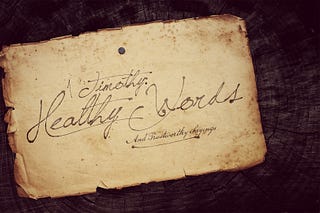 1 Timothy:
Healthy Words
And Trustworthy Sayings